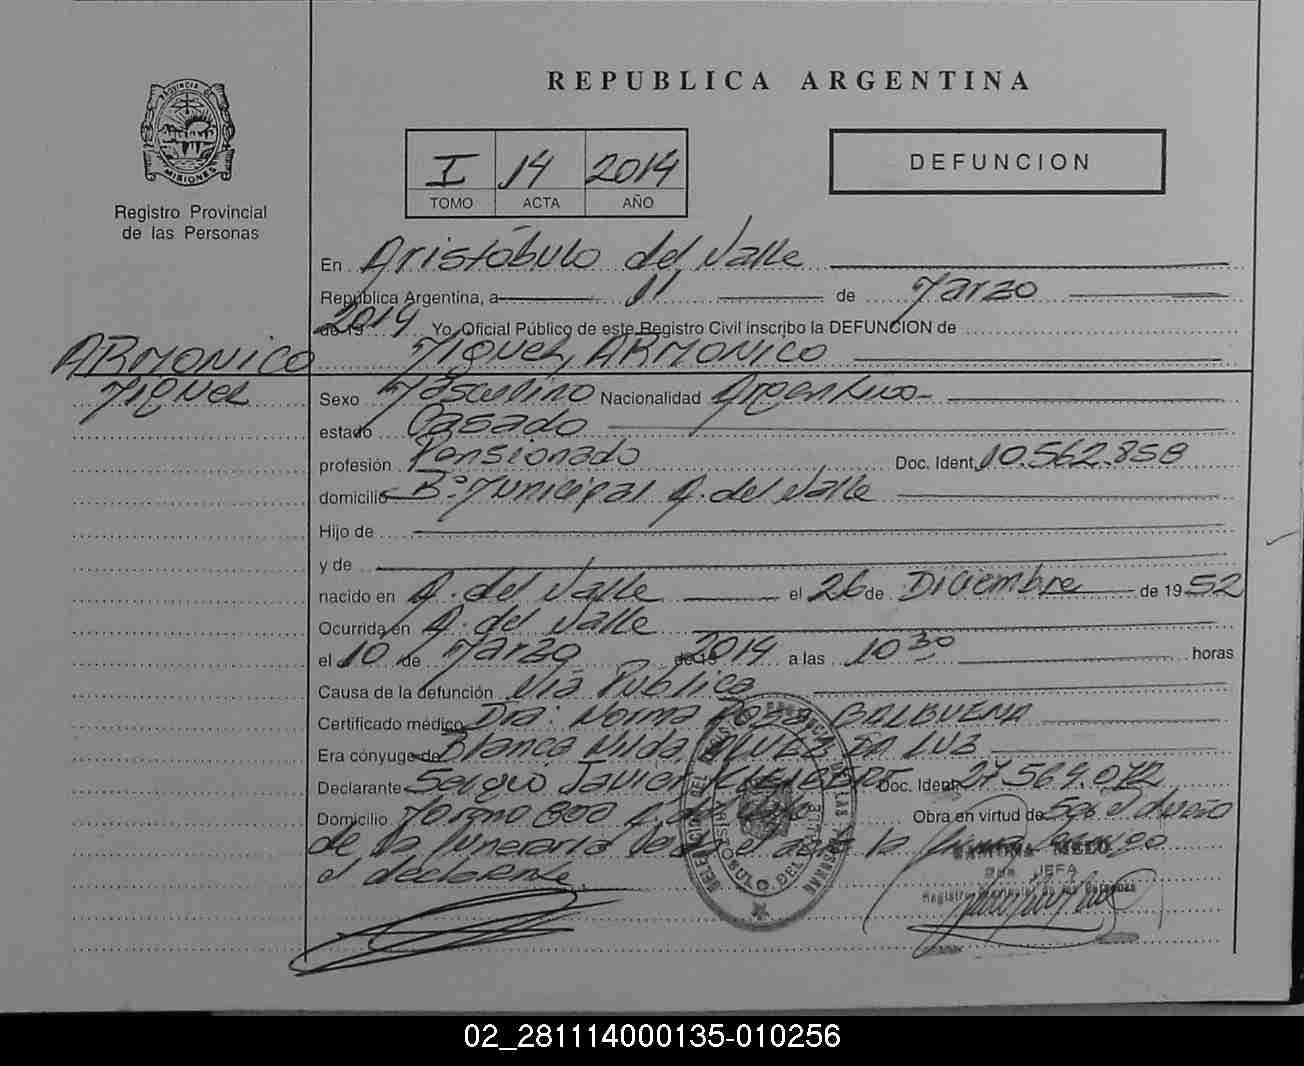 REPUBLICA ARGENTINA
PROVINCIA DE
MISIONES
Registro Provincial
de las Personas
I 14 2014
TOMO ACTA AÑO
DEFUNCION
En Aristóbulo del Valle
República Argentina, a 11 de Marzo
de 19 2014 Yo, Oficial Público de este Registro Civil inscribo la DEFUNCION de
ARMONICO
Miguel
Miguel, ARMONICO
Sexo Masculino Nacionalidad Argentina
estado Casado
profesión Pensionado Doc. Ident. 10.562.858
domicilio Bº Municipal A. del Valle
Hijo de
y de
nacido en A. del Valle el 26 de Diciembre de 1952
Ocurrida en A. del Valle
el 10 de Marzo de 19 2014 a las 10 30 horas
Causa de la defunción Via Publica
Certificado médico Dra: Norma Rosa BALBUENA
Era cónyuge de Blanca Nilda, ALVEZ DA LUZ
Declarante Sergio Javier Doc. Ident. 27.569.072
Domicilio Moreno 800 A. del Valle Obra en virtud de Ser el dueño
de la funeraria el la firma conmigo
el declarante
DELEGACION DEL REGISTRO PROVINCIAL DE LAS PERSONAS
ARISTOBULO DEL VALLE
RAMONA MELO
JEFA
Registro Provincial de las Personas
02_281114000135-010256